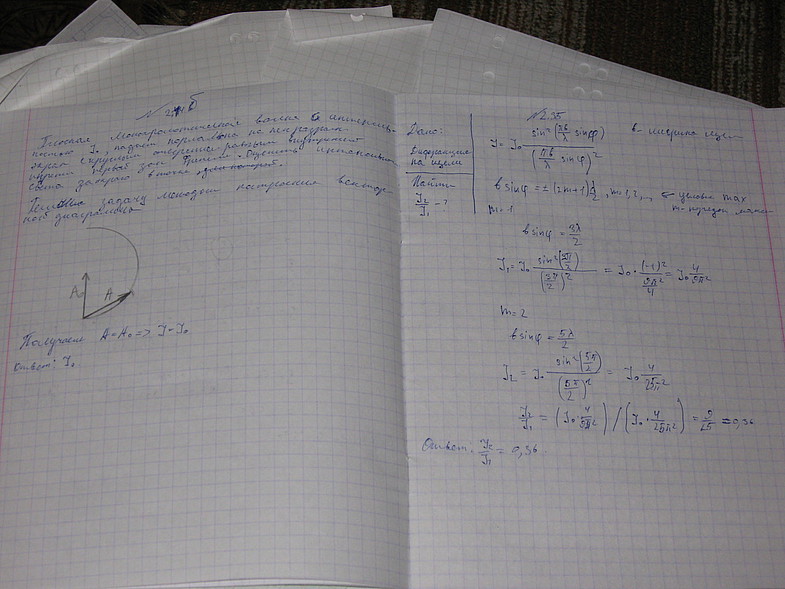 Плоская монохроматическая волна с интенсив-
ностью I₀, падает нормально на непрозрачн.
экран с круглым отверстием
первой зон Френеля. Оценить интенсивность
света за экраном в точке
Решаем задачу методом построения вектор-
ной диаграммы
A₀ A
Получаем A=A₀ => I=I₀
Ответ: I₀
№2.35
Дано:
Дифракция
на щели
Найти
I₂/I₁ - ?
I = I₀ sin²(πb/λ sinφ) / (πb/λ sinφ)² b - ширина щели
b sinφ = ±(2m+1)λ/2, m=1,2,... ← условие max
m=1
b sinφ = 3λ/2
I₁ = I₀ sin²(3π/2) / (3π/2)² = I₀ · (-1)² / (9π²/4) = I₀ 4/9π²
m=2
b sinφ = 5λ/2
I₂ = I₀ sin²(5π/2) / (5π/2)² = I₀ 4/25π²
I₂/I₁ = (I₀ · 4/9π²) / (I₀ · 4/25π²) = 9/25 = 0,36
Ответ: I₂/I₁ = 0,36